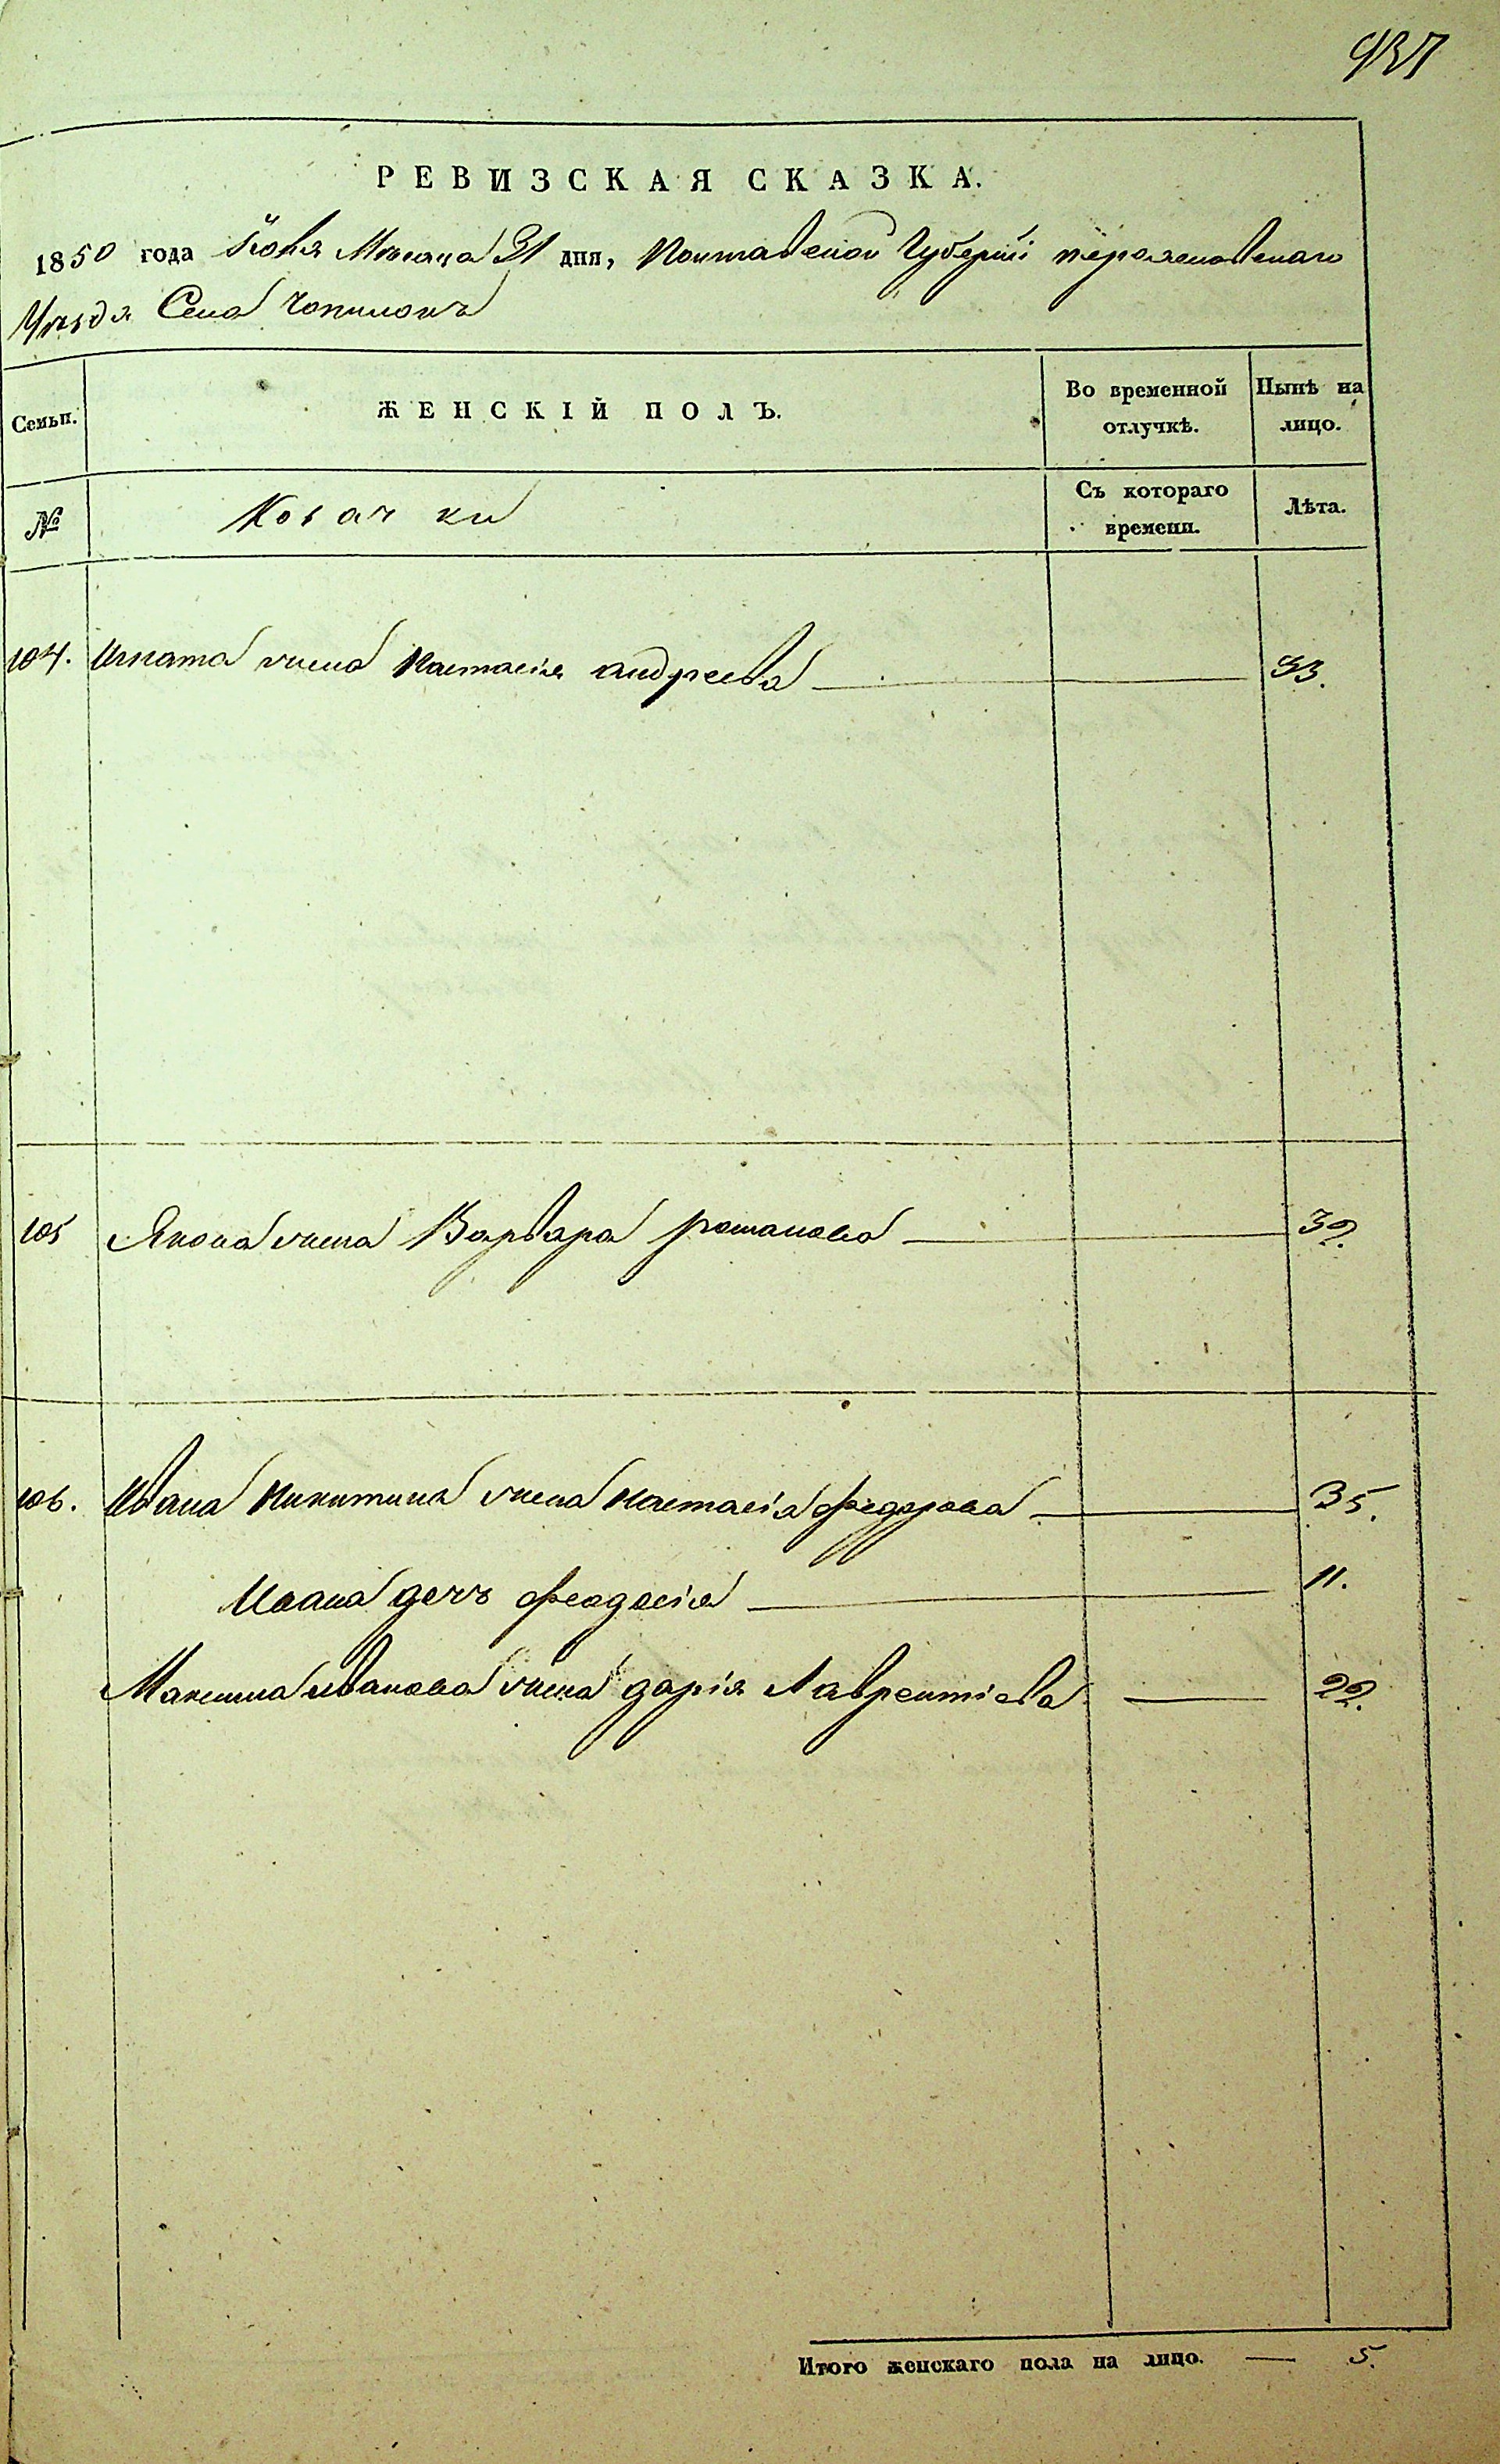 937
РЕВИЗСКАЯ СКАЗКА.
1850 года Іюня Месяца 31 дня, Полтавской Губерніи переяславскаго
Уезда Села Чопилокъ
Семьи. ЖЕНСКІЙ ПОЛЪ. Во временной отлучкѣ. Нынѣ на лицо.
№ Козачки Съ котораго времени. Лѣта.
104. Игната жена Настасія андреева 53.
105 Якова жена Варвара романова 32.
106. Ивана Никитина жена настасія федорова 35.
Ивана дочъ феодосія 11.
Максима иванова жена дарія Лаврентіева 22.
Итого женскаго пола на лицо. 5.